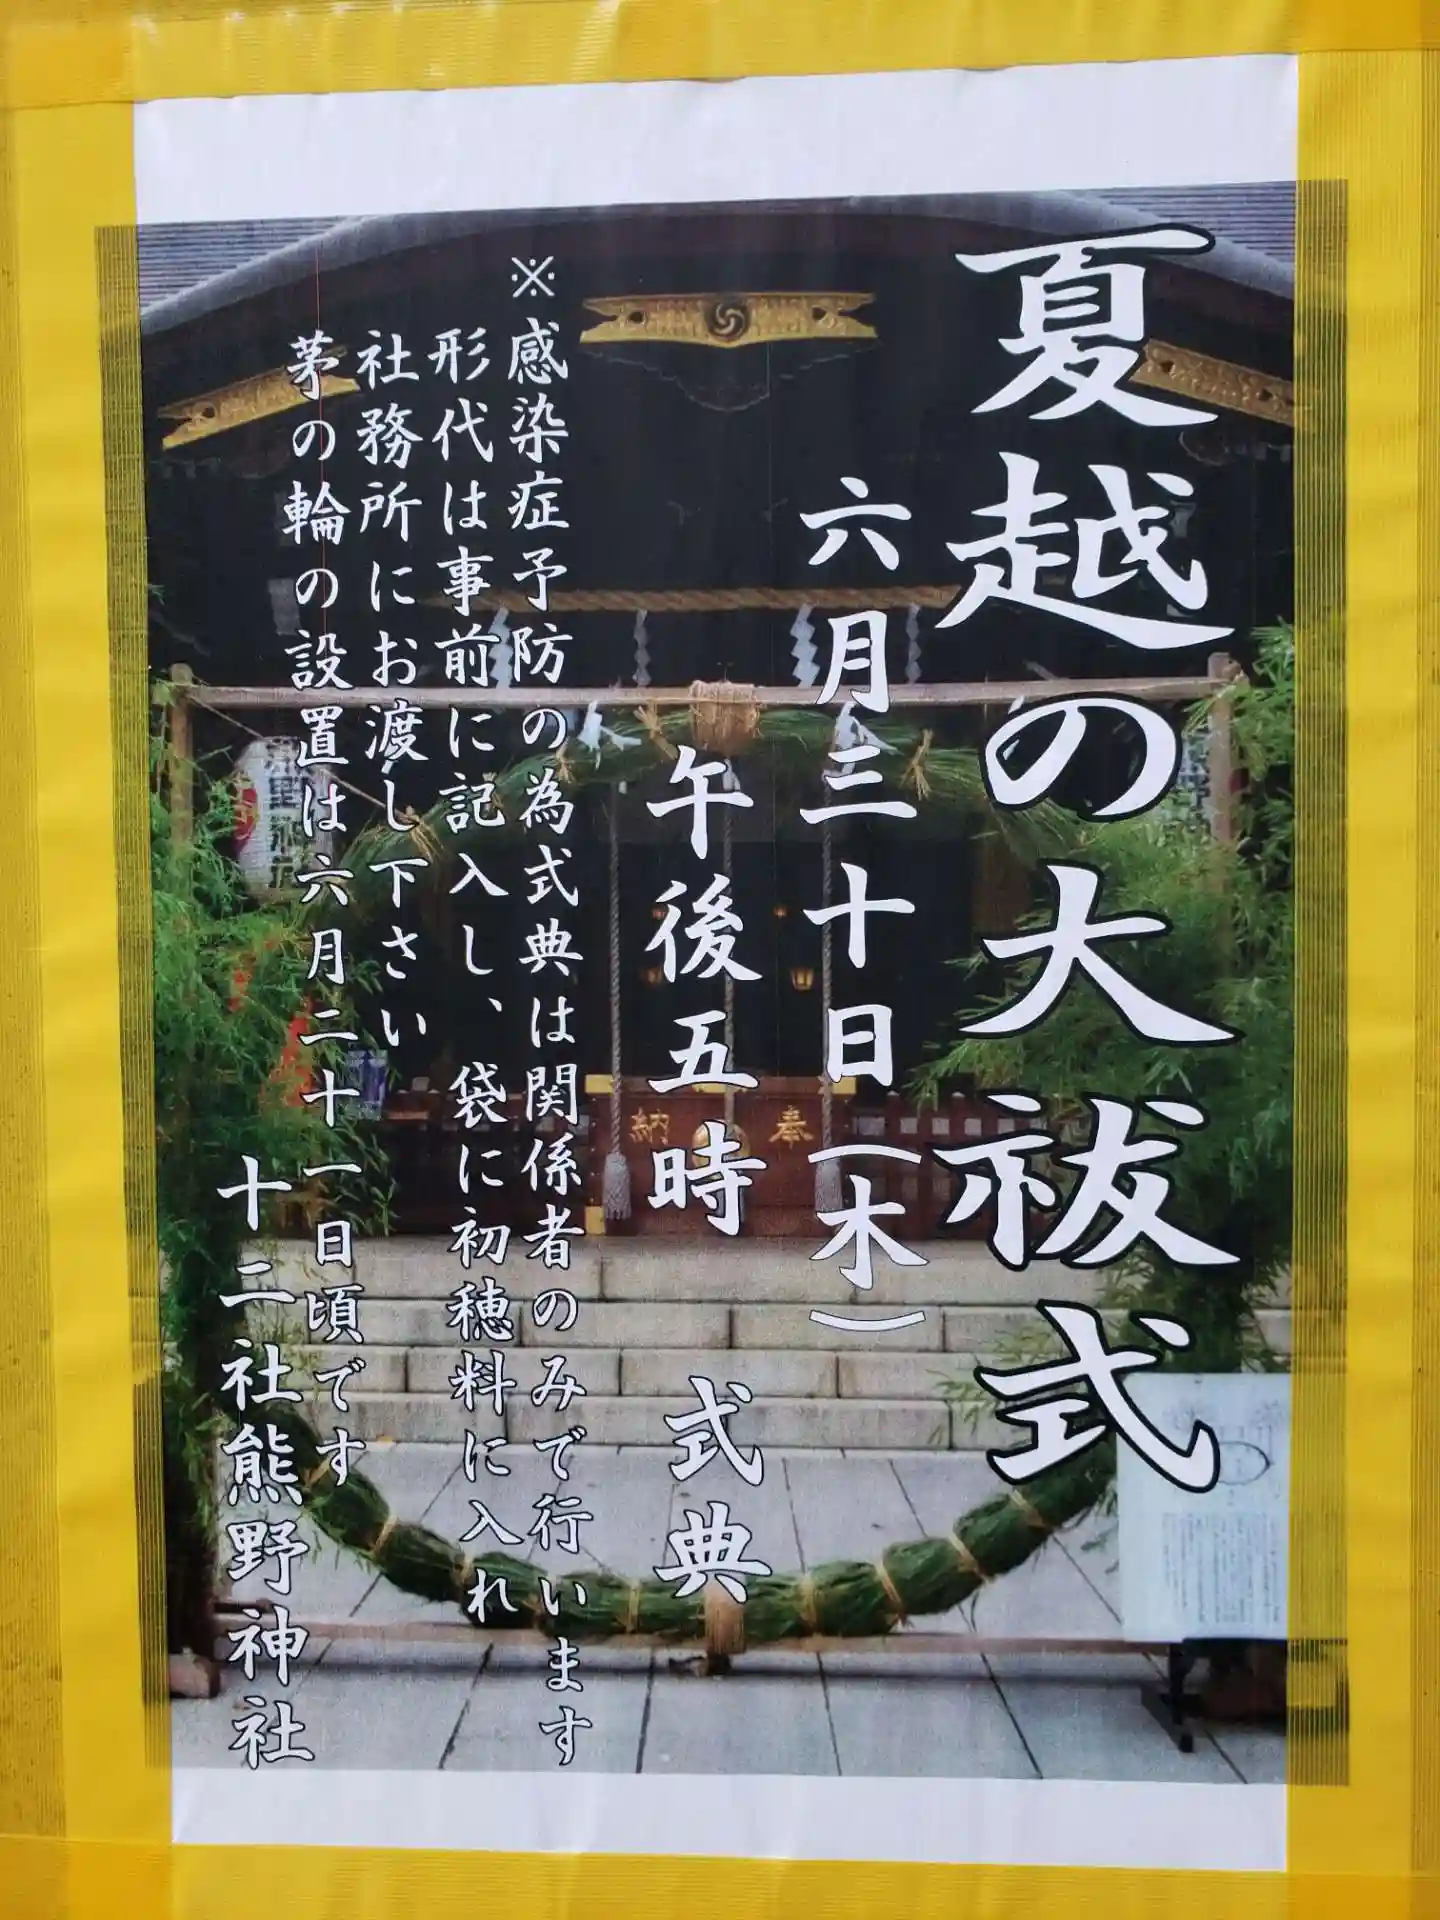 夏越の大祓式
六月三十日(木)
午後五時 式典
※感染症予防の為式典は関係者のみで行います
形代は事前に記入し、袋に初穂料に入れ
社務所にお渡し下さい
茅の輪の設置は六月二十一日頃です
十二社熊野神社
奉納